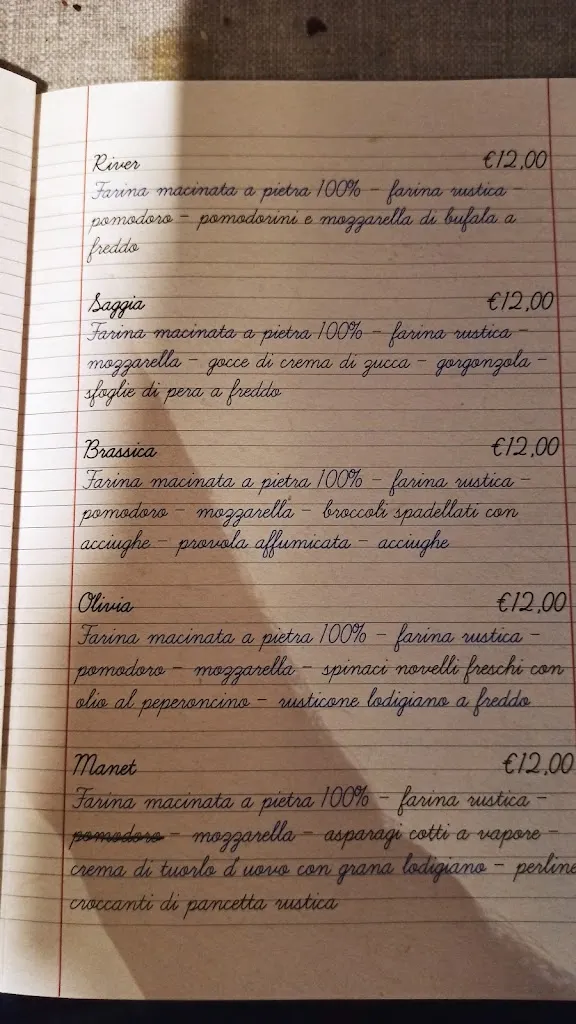 River €12,00
Farina macinata a pietra 100% - farina rustica -
pomodoro - pomodorini e mozzarella di bufala a
freddo
Saggia €12,00
Farina macinata a pietra 100% - farina rustica -
mozzarella - gocce di crema di zucca - gorgonzola -
sfoglie di pera a freddo
Brassica €12,00
Farina macinata a pietra 100% - farina rustica -
pomodoro - mozzarella - broccoli spadellati con
acciughe - provola affumicata - acciughe
Olivia €12,00
Farina macinata a pietra 100% - farina rustica -
pomodoro - mozzarella - spinaci novelli freschi con
olio al peperoncino - rusticone lodigiano a freddo
Manet €12,00
Farina macinata a pietra 100% - farina rustica -
pomodoro - mozzarella - asparagi cotti a vapore -
crema di tuorlo d'uovo con grana lodigiano - perline
croccanti di pancetta rustica